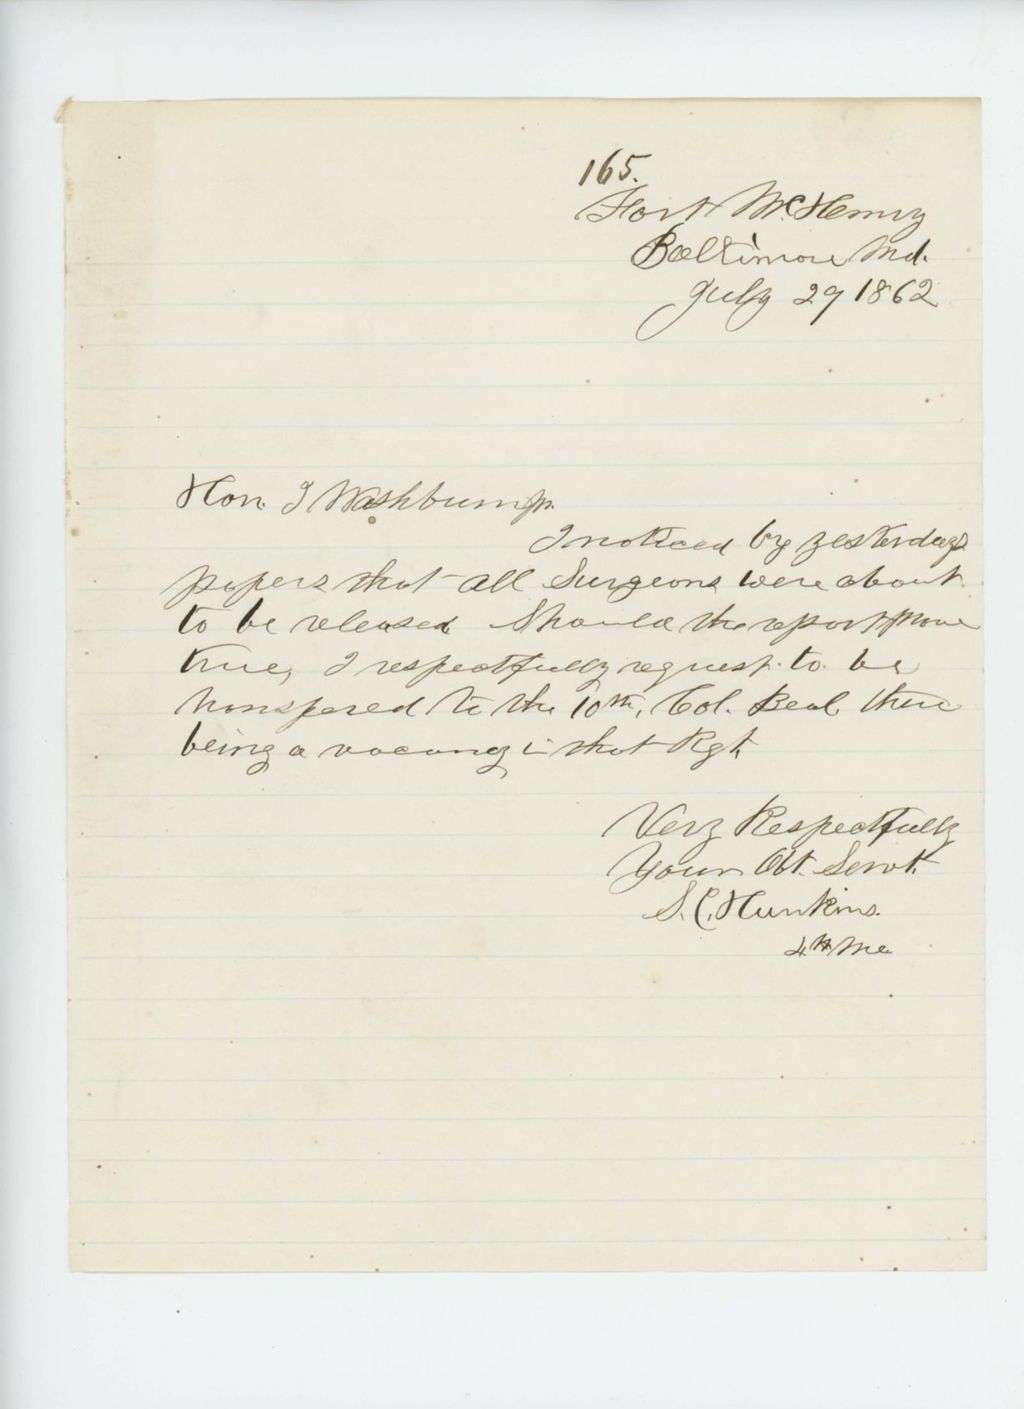 165.
Fort McHenry
Baltimore Md.
July 29 1862
Hon. I Washburn Jr.
I noticed by yesterdays
papers that all Surgeons were about
to be released Should the report prove
true, I respectfully request to be
transfered to the 10th, Col. Beal there
being a vacancy in that Rgt
Very Respectfully
Your Obt. Servt.
S. C. Hunkins.
4th Me